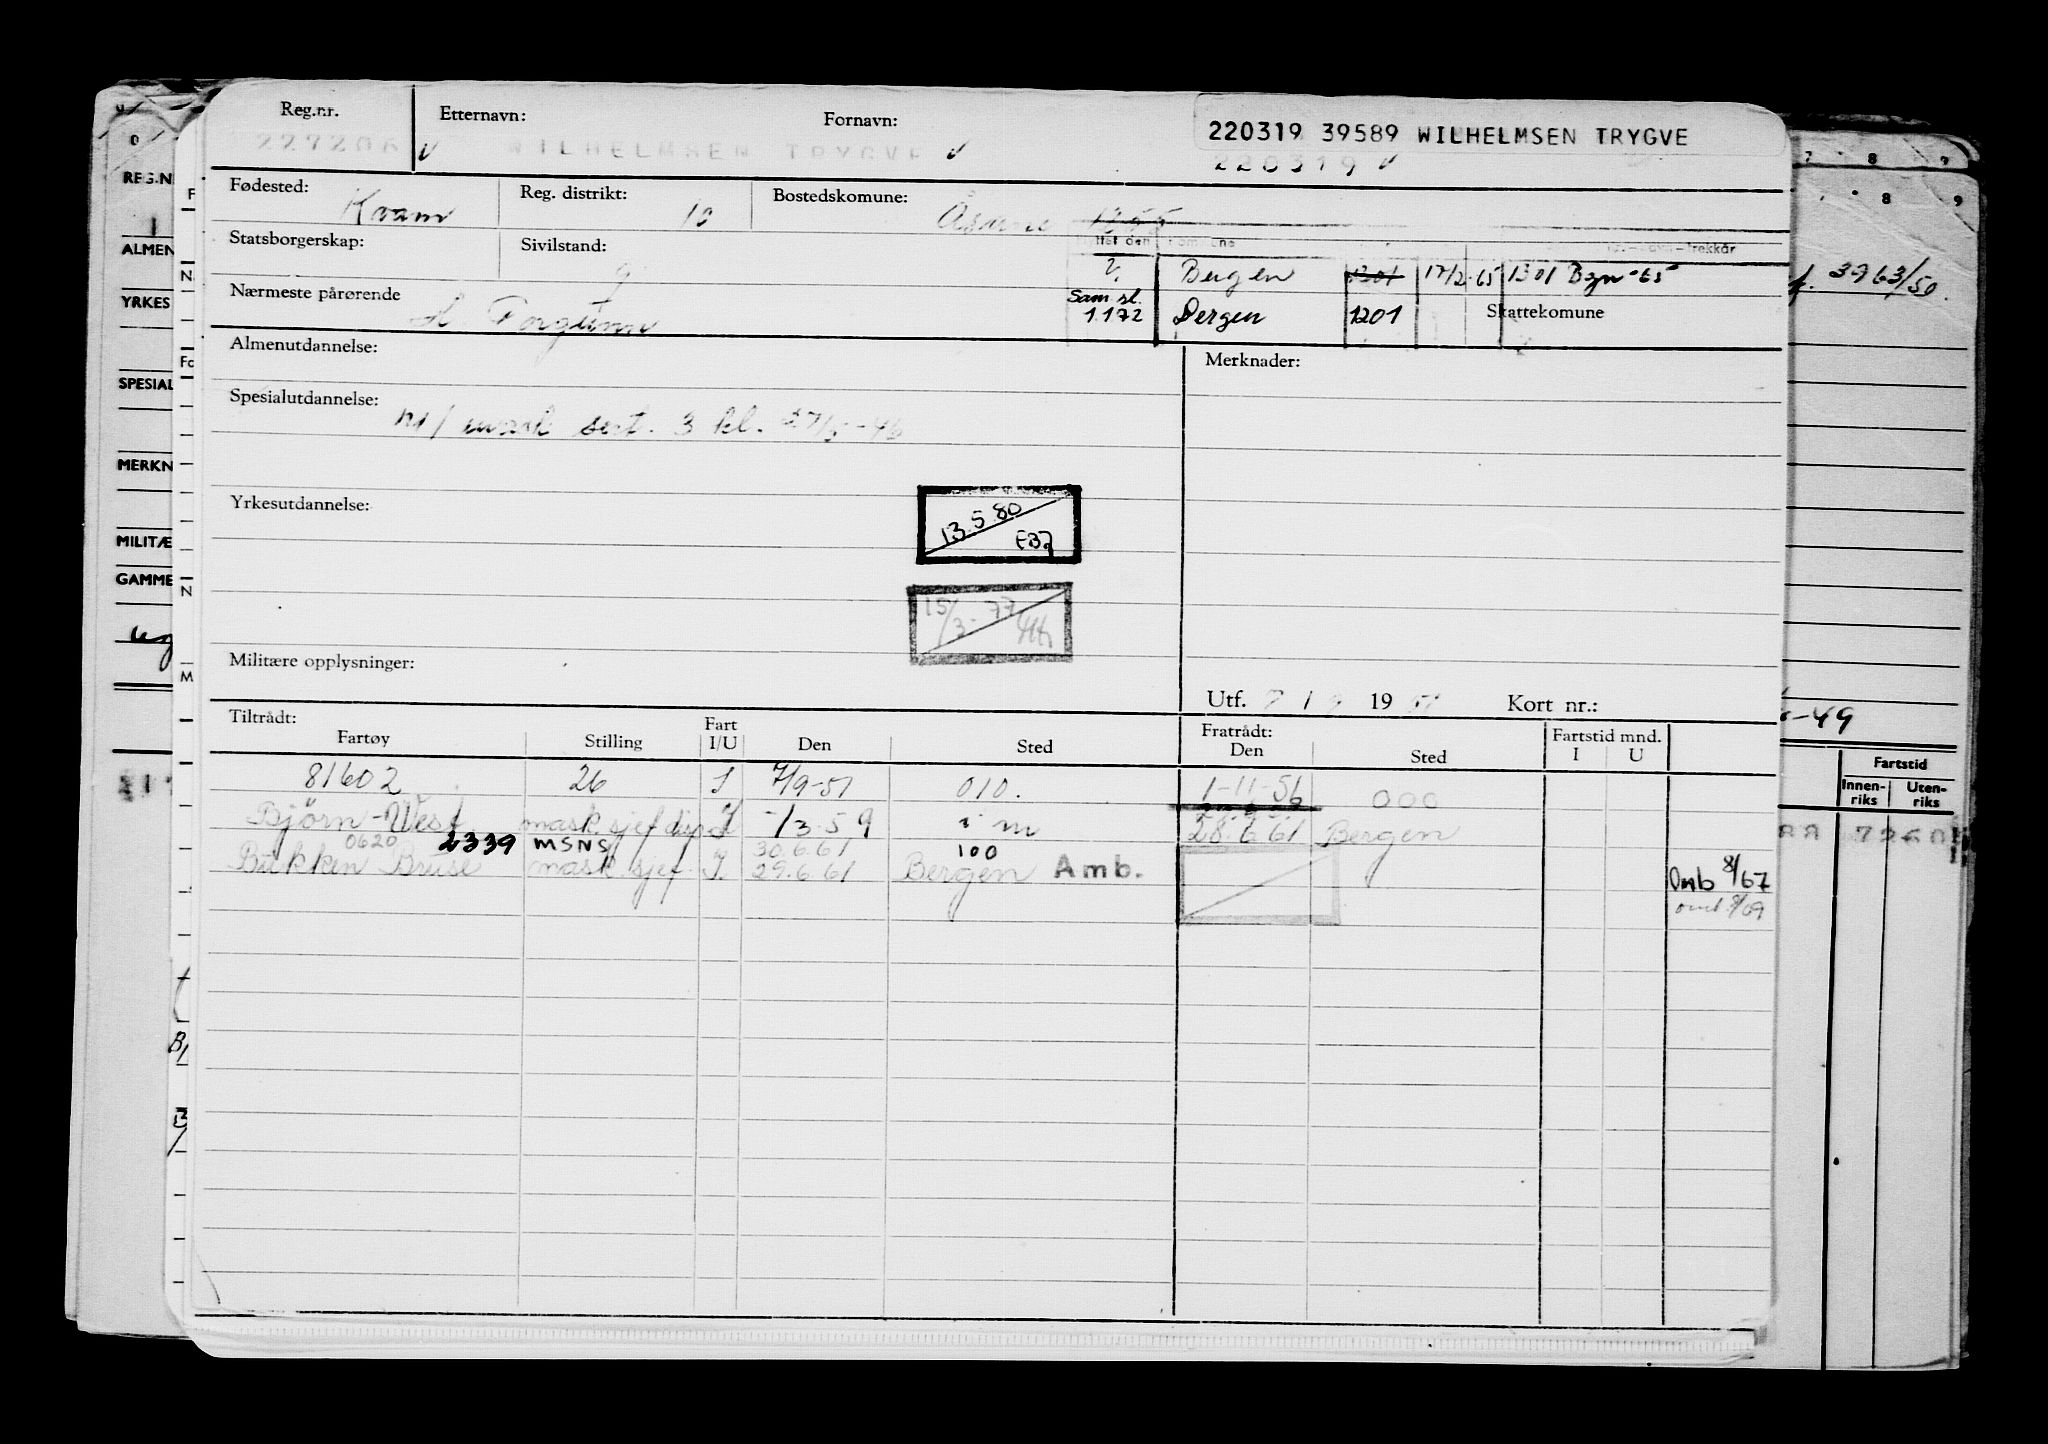 Reg.nr. Etternavn: Fornavn: 220319 39589 WILHELMSEN TRYGVE
WILHELMSEN TRYGVE 220319
Fødested: Kvam Reg. distrikt: 10 Bostedskomune: Åsane 1255
Statsborgerskap: Sivilstand: g Flyttet den Komune
Bergen 1301 17/2-65 1301 Bgn-65
Nærmeste pårørende Sam.sl.
1.1 72 Bergen 1201 Skattekomune
Almenutdannelse: Merknader:
Spesialutdannelse: m/ mask sert. 3 kl. 27/5-46
Yrkesutdannelse: 13.5 80
15/3-77
Militære opplysninger:
Utf. 7 / 9 1951 Kort nr.:
Tiltrådt: Fart Fratrådt: Fartstid mnd.
Fartøy Stilling I/U Den Sted Den Sted I U
81602 26 I 7/9-51 010. 1-11-56 000
Bjørn-West mask.sjef disp I -/3-59 i m 28.6.61 Bergen
0620 2339 MSNS 30.6.61 100
Bukken Bruse mask.sjef I. 29.6.61 Bergen Amb.
Omb 8/67
omb 8/69
REG.N
ALMEN
YRKES
SPESIAL
MERKN
MILITÆ
GAMME
7 8 9
8 9
3963/50.
-49
Fartstid
Innen-riks Uten-riks